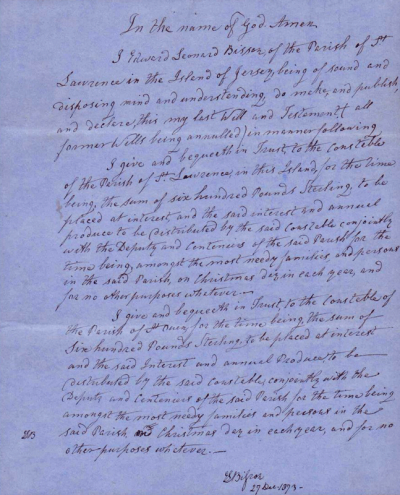 In the name of God Amen
I Edward Leonard Bisson, of the Parish of St
Lawrence in the Island of Jersey, being of sound and
disposing mind and understanding, do make, and publish,
and declare, this my last Will and Testament, (all
former Wills being annulled) in manner following
I give and bequeeth in Trust, to the Constable
of the Parish of St. Lawrence, in this Island, for the time
being, the sum of six hundred Pounds Sterling, to be
placed at interest and the said interest and annual
produce to be distributed by the said Constable conjointly
with the Deputy and Centeniers of the said Parish for the
time being, amongst the most needy families and persons
in the said Parish, on Christmas day in each year, and
for no other purposes whatever.—
I give and bequeeth in Trust, to the Constable of
the Parish of St Ouen, for the time being, the sum of
Six hundred Pounds Sterling, to be placed at interest
and the said Interest and annual Produce to be
distributed by the said Constable, conjointly with the
Deputy and Centeniers of the said Parish for the time being
amongst the most needy families and persons in the
said Parish, Christmas day in each year, and for no
other purposes whatever.—
27 Dec. 1873.—